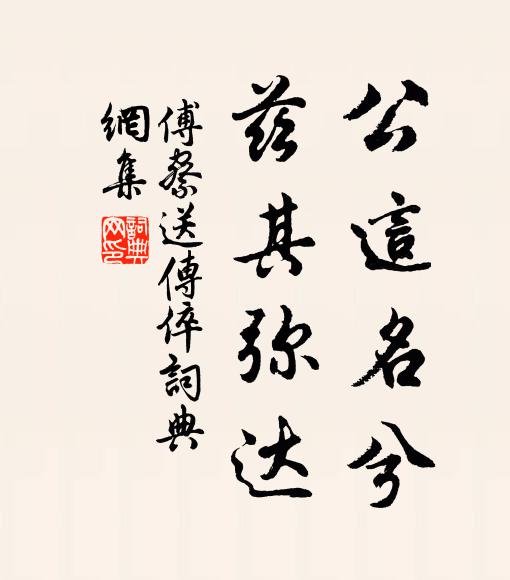 公這名兮
兹其弥达
傅察送傅倅詞典
網集
詞典
网印